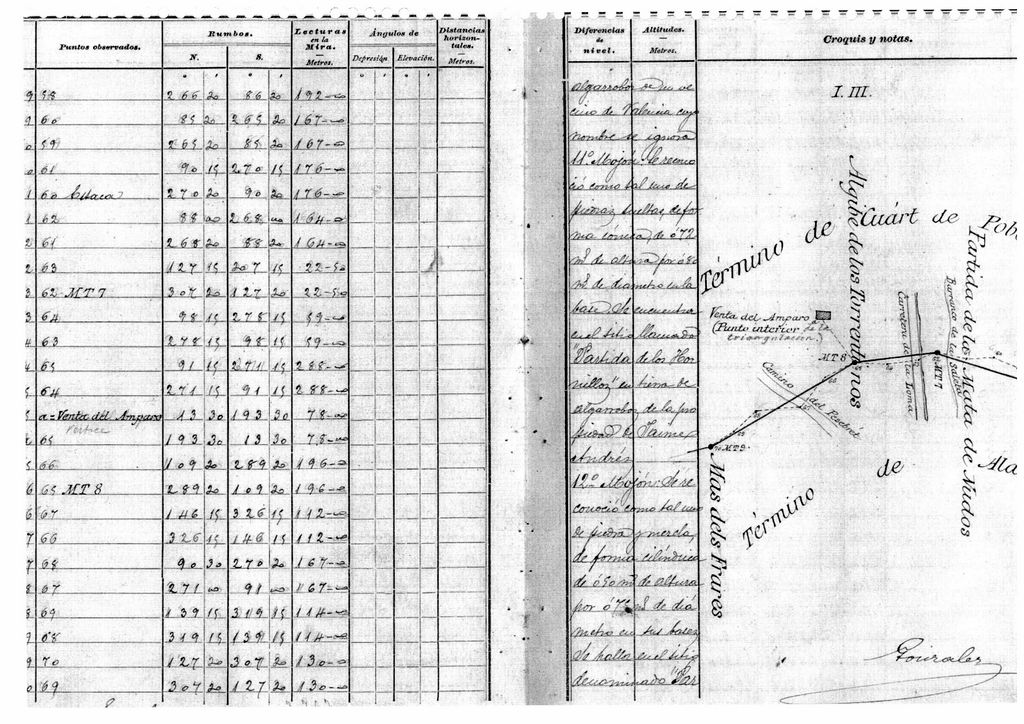 Puntos observados.
Rumbos.
N. S.
Lecturas
en la
Mira.
Metros.
Ángulos de
Depresión. Elevación.
Distancias
horizon-
tales.
Metros.
9 58 266 20 86 20 192-00
9 60 85 20 265 20 167-00
0 59 265 20 85 20 167-00
0 61 90 15 270 15 176-00
1 60 Estaca 270 20 90 20 176-00
1 62 88 00 268 00 164-00
2 61 268 20 88 20 164-00
2 63 127 15 307 15 22-50
3 62 MT7 307 20 127 20 22-50
3 64 98 15 278 15 59-00
4 63 278 15 98 15 59-00
4 65 91 15 271 15 288-00
5 64 271 15 91 15 288-00
5 a=Venta del Amparo 13 30 193 30 78-00
65 193 30 13 30 78-00
5 66 109 20 289 20 196-00
6 65 MT8 289 20 109 20 196-00
6 67 146 15 326 15 112-00
7 66 326 15 146 15 112-00
7 68 90 30 270 20 167-00
8 67 271 00 91 00 167-00
8 69 139 15 319 15 114-00
9 68 319 15 139 15 114-00
9 70 127 20 307 20 130-00
0 69 307 20 127 20 130-00
Diferencias
de
nivel.
Altitudes.
Metros.
algarrobos de un ve
cino de Valencia cuyo
nombre se ignora
11º Mojon: Se recono
ció como tal uno de
piedras sueltas, de for
ma cónica, de 0'72
mº de altura por 0'80
mº de diametro en la
base. Se encuentra
en el sitio llamado
"Partida de los Hor
nillos" en tierra de
algarrobos de la pro
piedad de Jaime
Andrés
12º Mojón: Se re
conoció como tal uno
de piedra y mezcla,
de forma cilíndrica
de 0'50 mº de altura
por mº de diá
metro en sus bases
Se halla en el sitio
denominado "Par
Croquis y notas.
I. III.
Término de Cuárt de Pob
Algibe de los Torrentinos
Partida de la Mata de Nudos
Barranco de la Saleta
Carretera de la Loma
Venta del Amparo
(Punto interior de la
triangulación)
MT8
MT7
Camino del Pesebret
MT9
Mas dels Frares
Término de Ala
Gonzalez